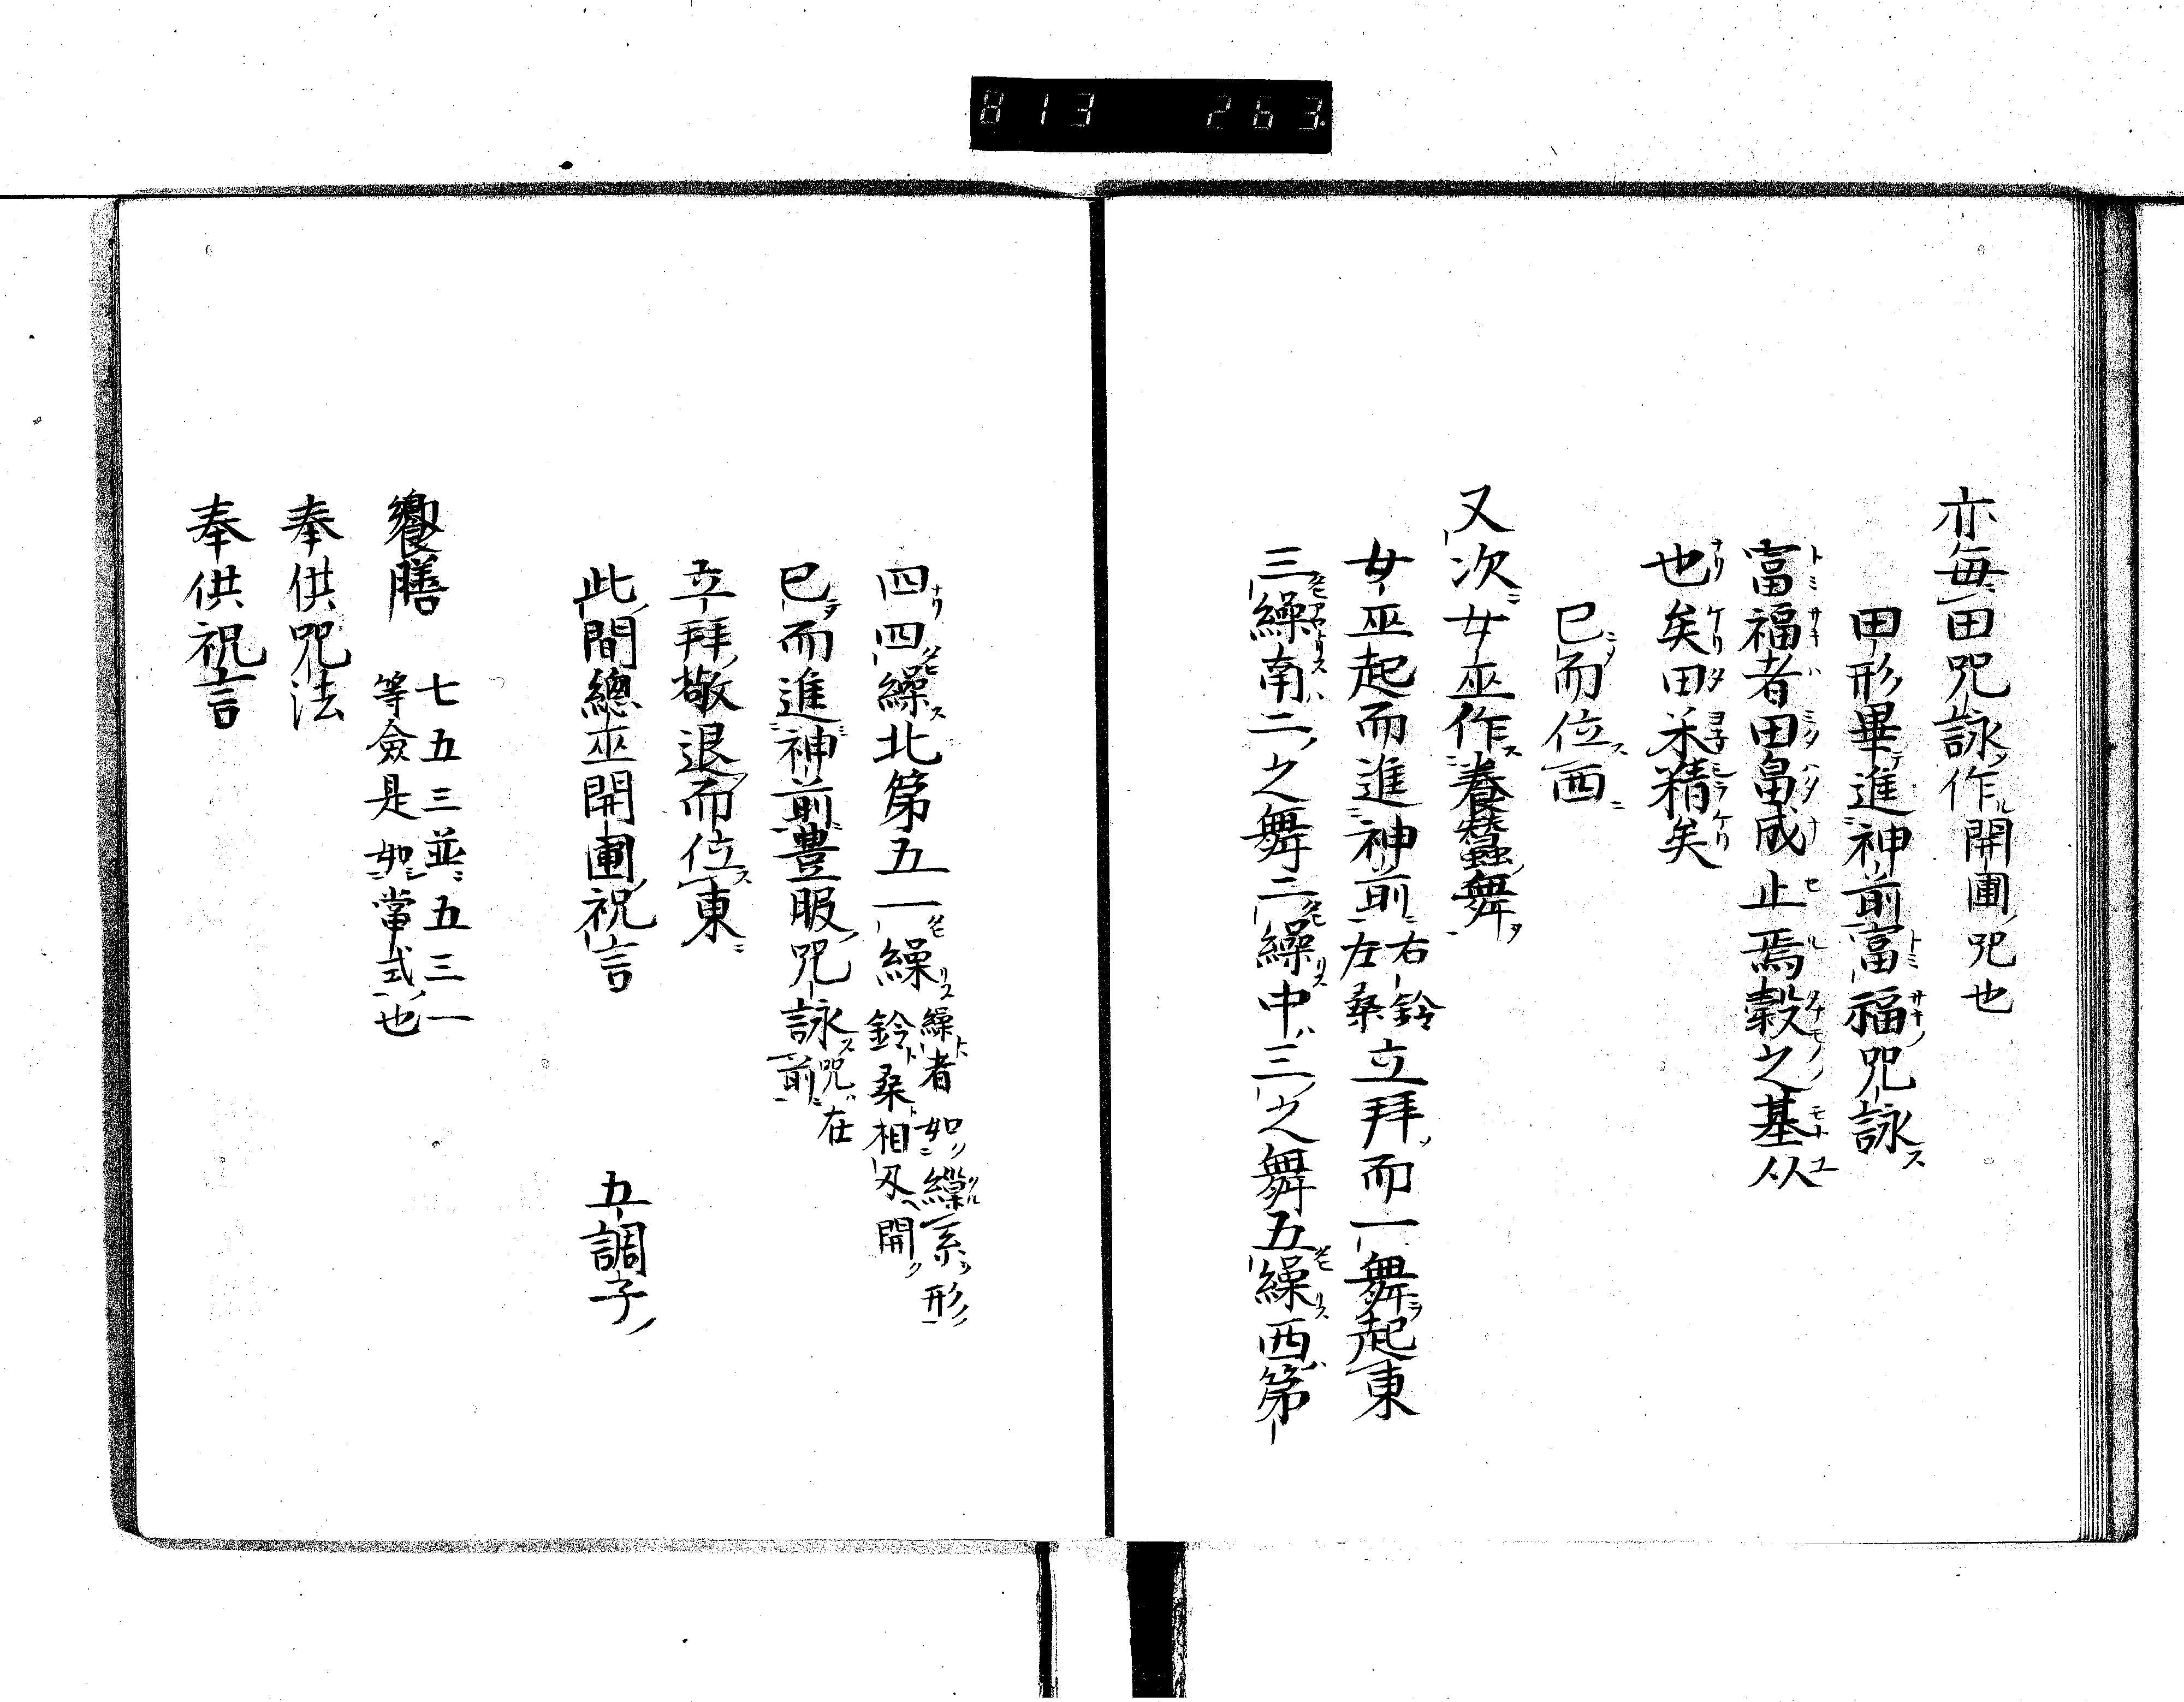 813 263
亦毎田咒詠作開圃咒也
甲形畢進神前富福咒詠
富福者田畠成止焉穀之基从
也矣田米精矣
已而位西
又次女巫作養蠶舞
女巫起而進神前右鈴左桑立拜而一舞起東
三繰南二之舞二繰中三之舞五繰西第
四四繰北第五一繰繰者如繰系形鈴桑相刄開
已而進神前豊服咒詠咒在前
立拜敬退而位東
此間總巫開圃祝言 五調子
饗膳 七五三並五三一等僉是如當式也
奉供咒法
奉供祝言